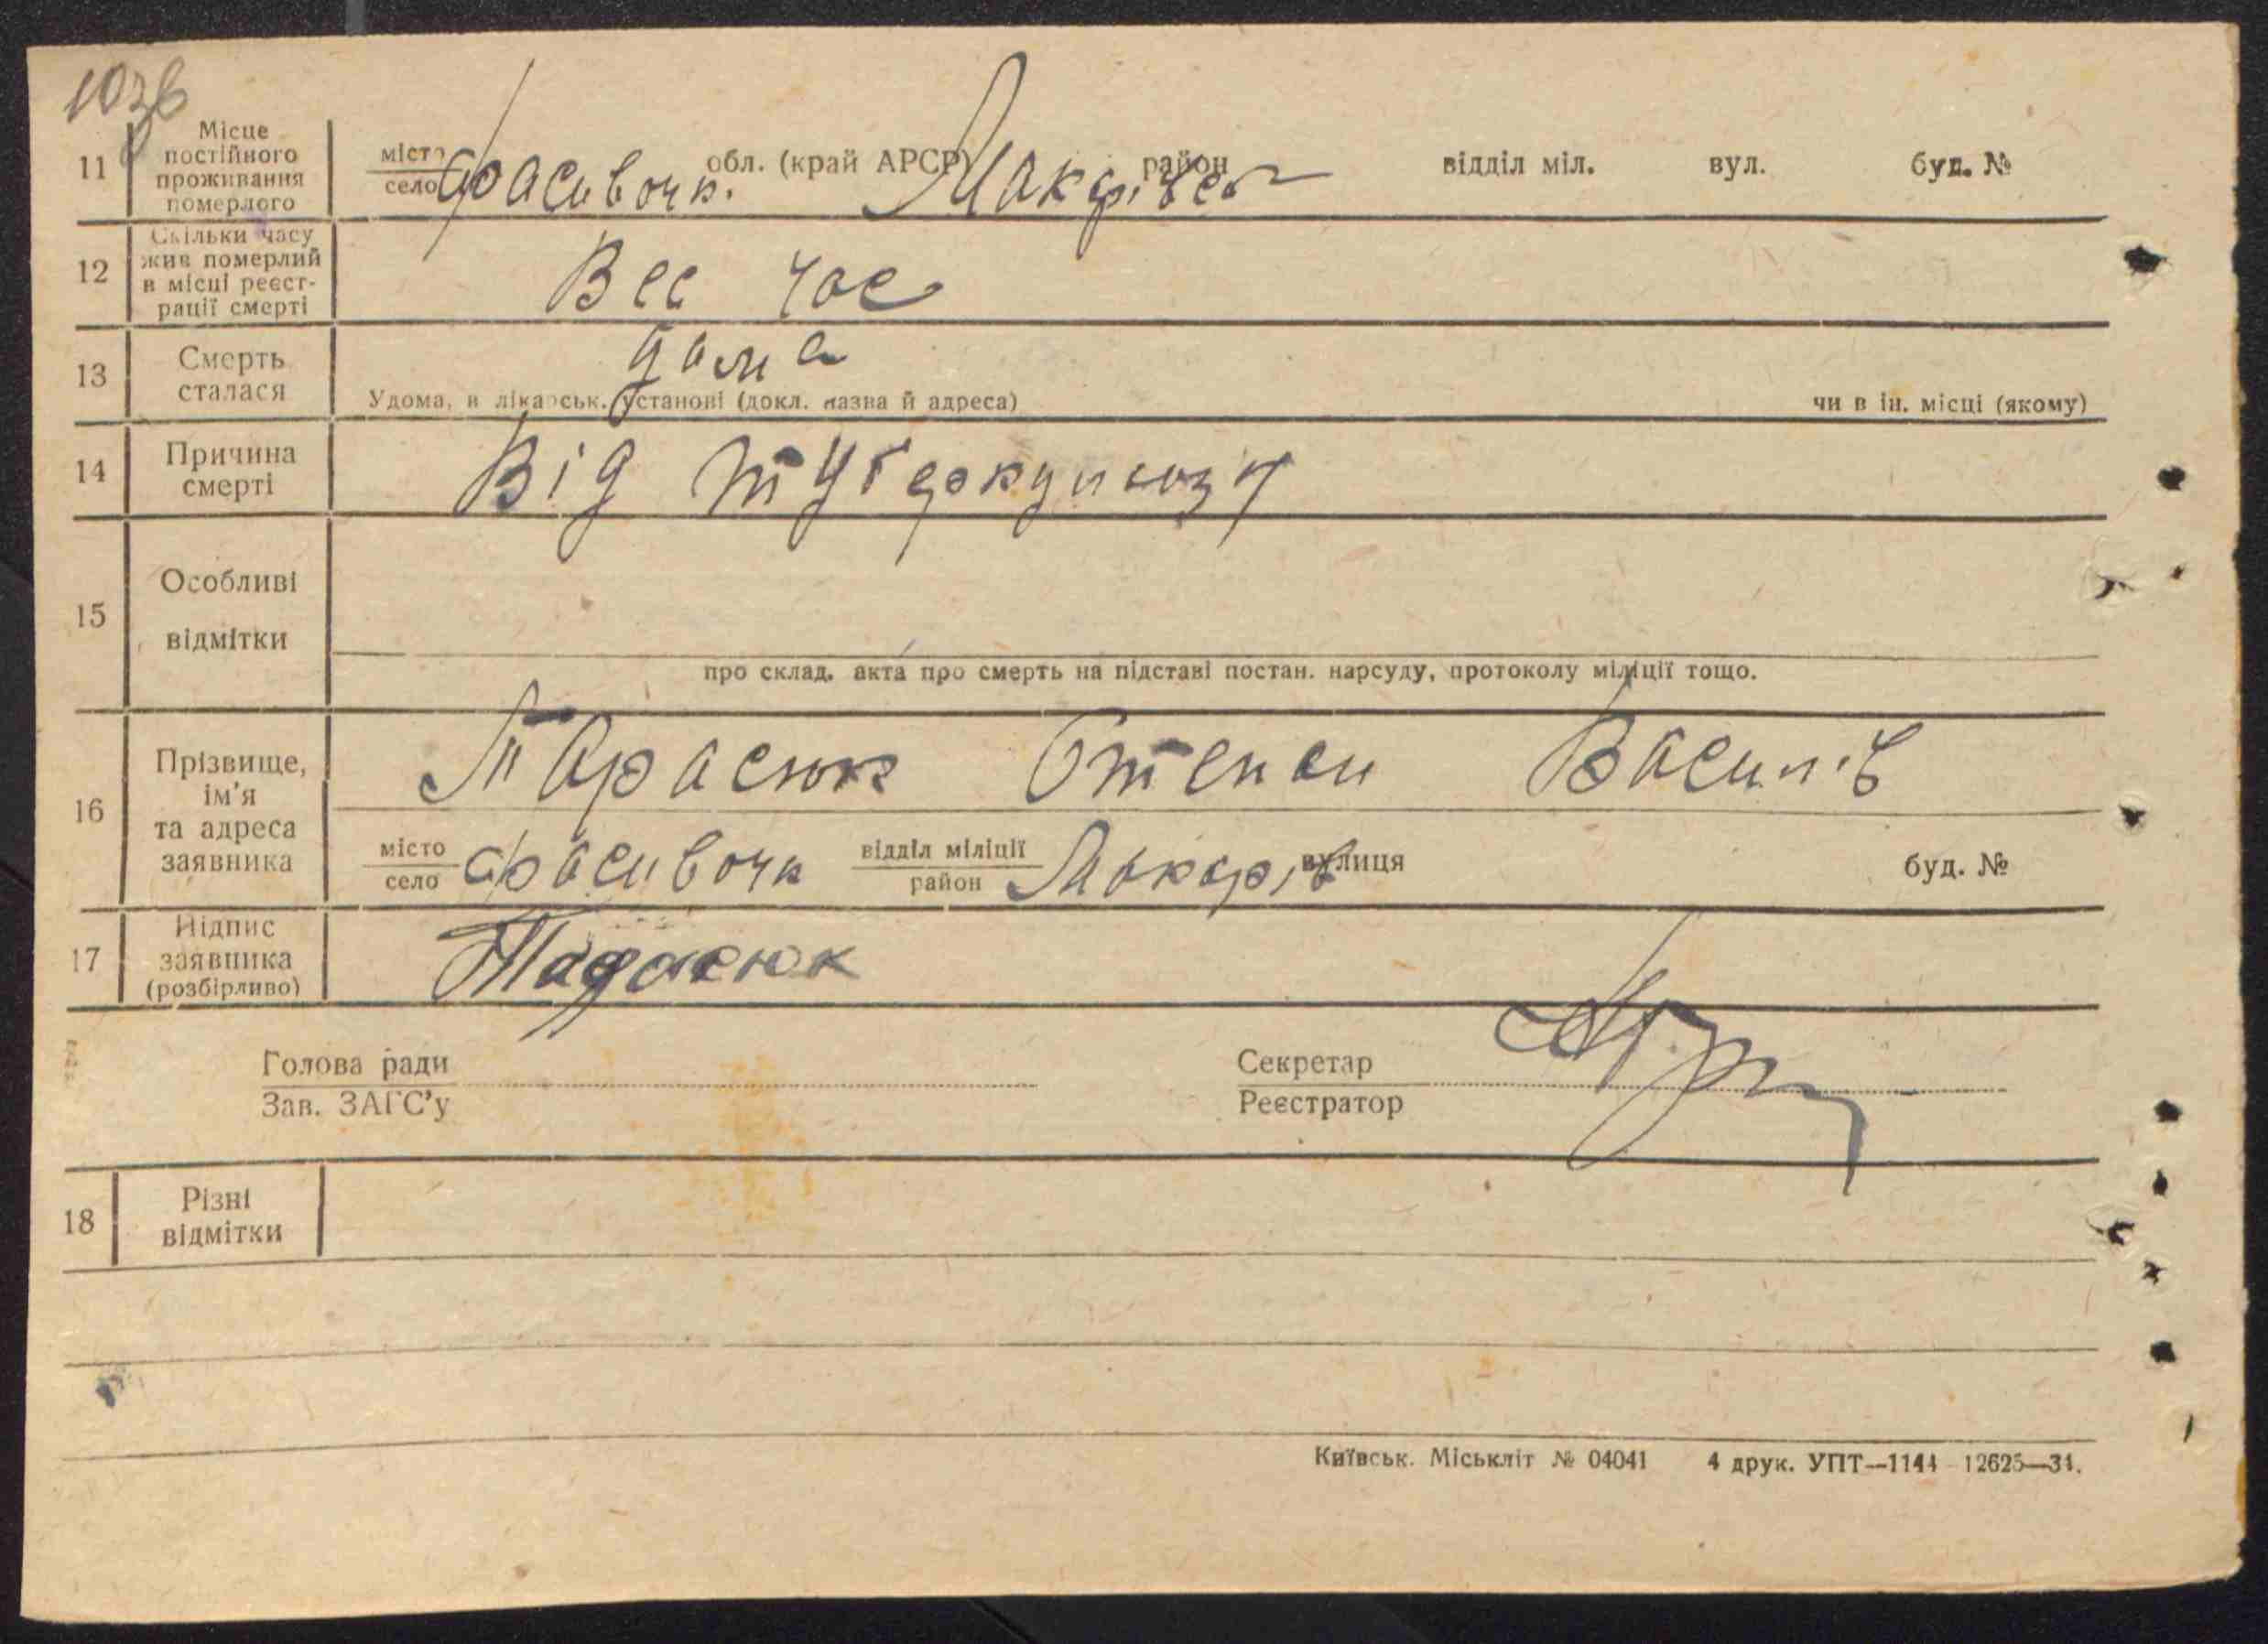 1036
11 Місце постійного проживання померлого
місто село Фасивочк. обл. (край АРСР) Макарівсь район відділ міл. вул. буд. №
12 Скільки часу жив померлий в місці реєстрації смерті
Вес час
13 Смерть сталася
дома
Удома, в лікарськ. установі (докл. назва й адреса) чи в ін. місці (якому)
14 Причина смерті
Від туберкульозу
15 Особливі відмітки
про склад. акта про смерть на підставі постан. нарсуду, протоколу міліції тощо.
16 Прізвище, ім'я та адреса заявника
Тарасюк Степан Василів
місто село Фасивочк відділ міліції район Макарів вулиця буд. №
17 Підпис заявника (розбірливо)
Тарасюк
Голова ради Секретар
Зав. ЗАГС'у Реєстратор
18 Різні відмітки
Київськ. Міськліт № 04041 4 друк. УПТ—1144 12625—31.